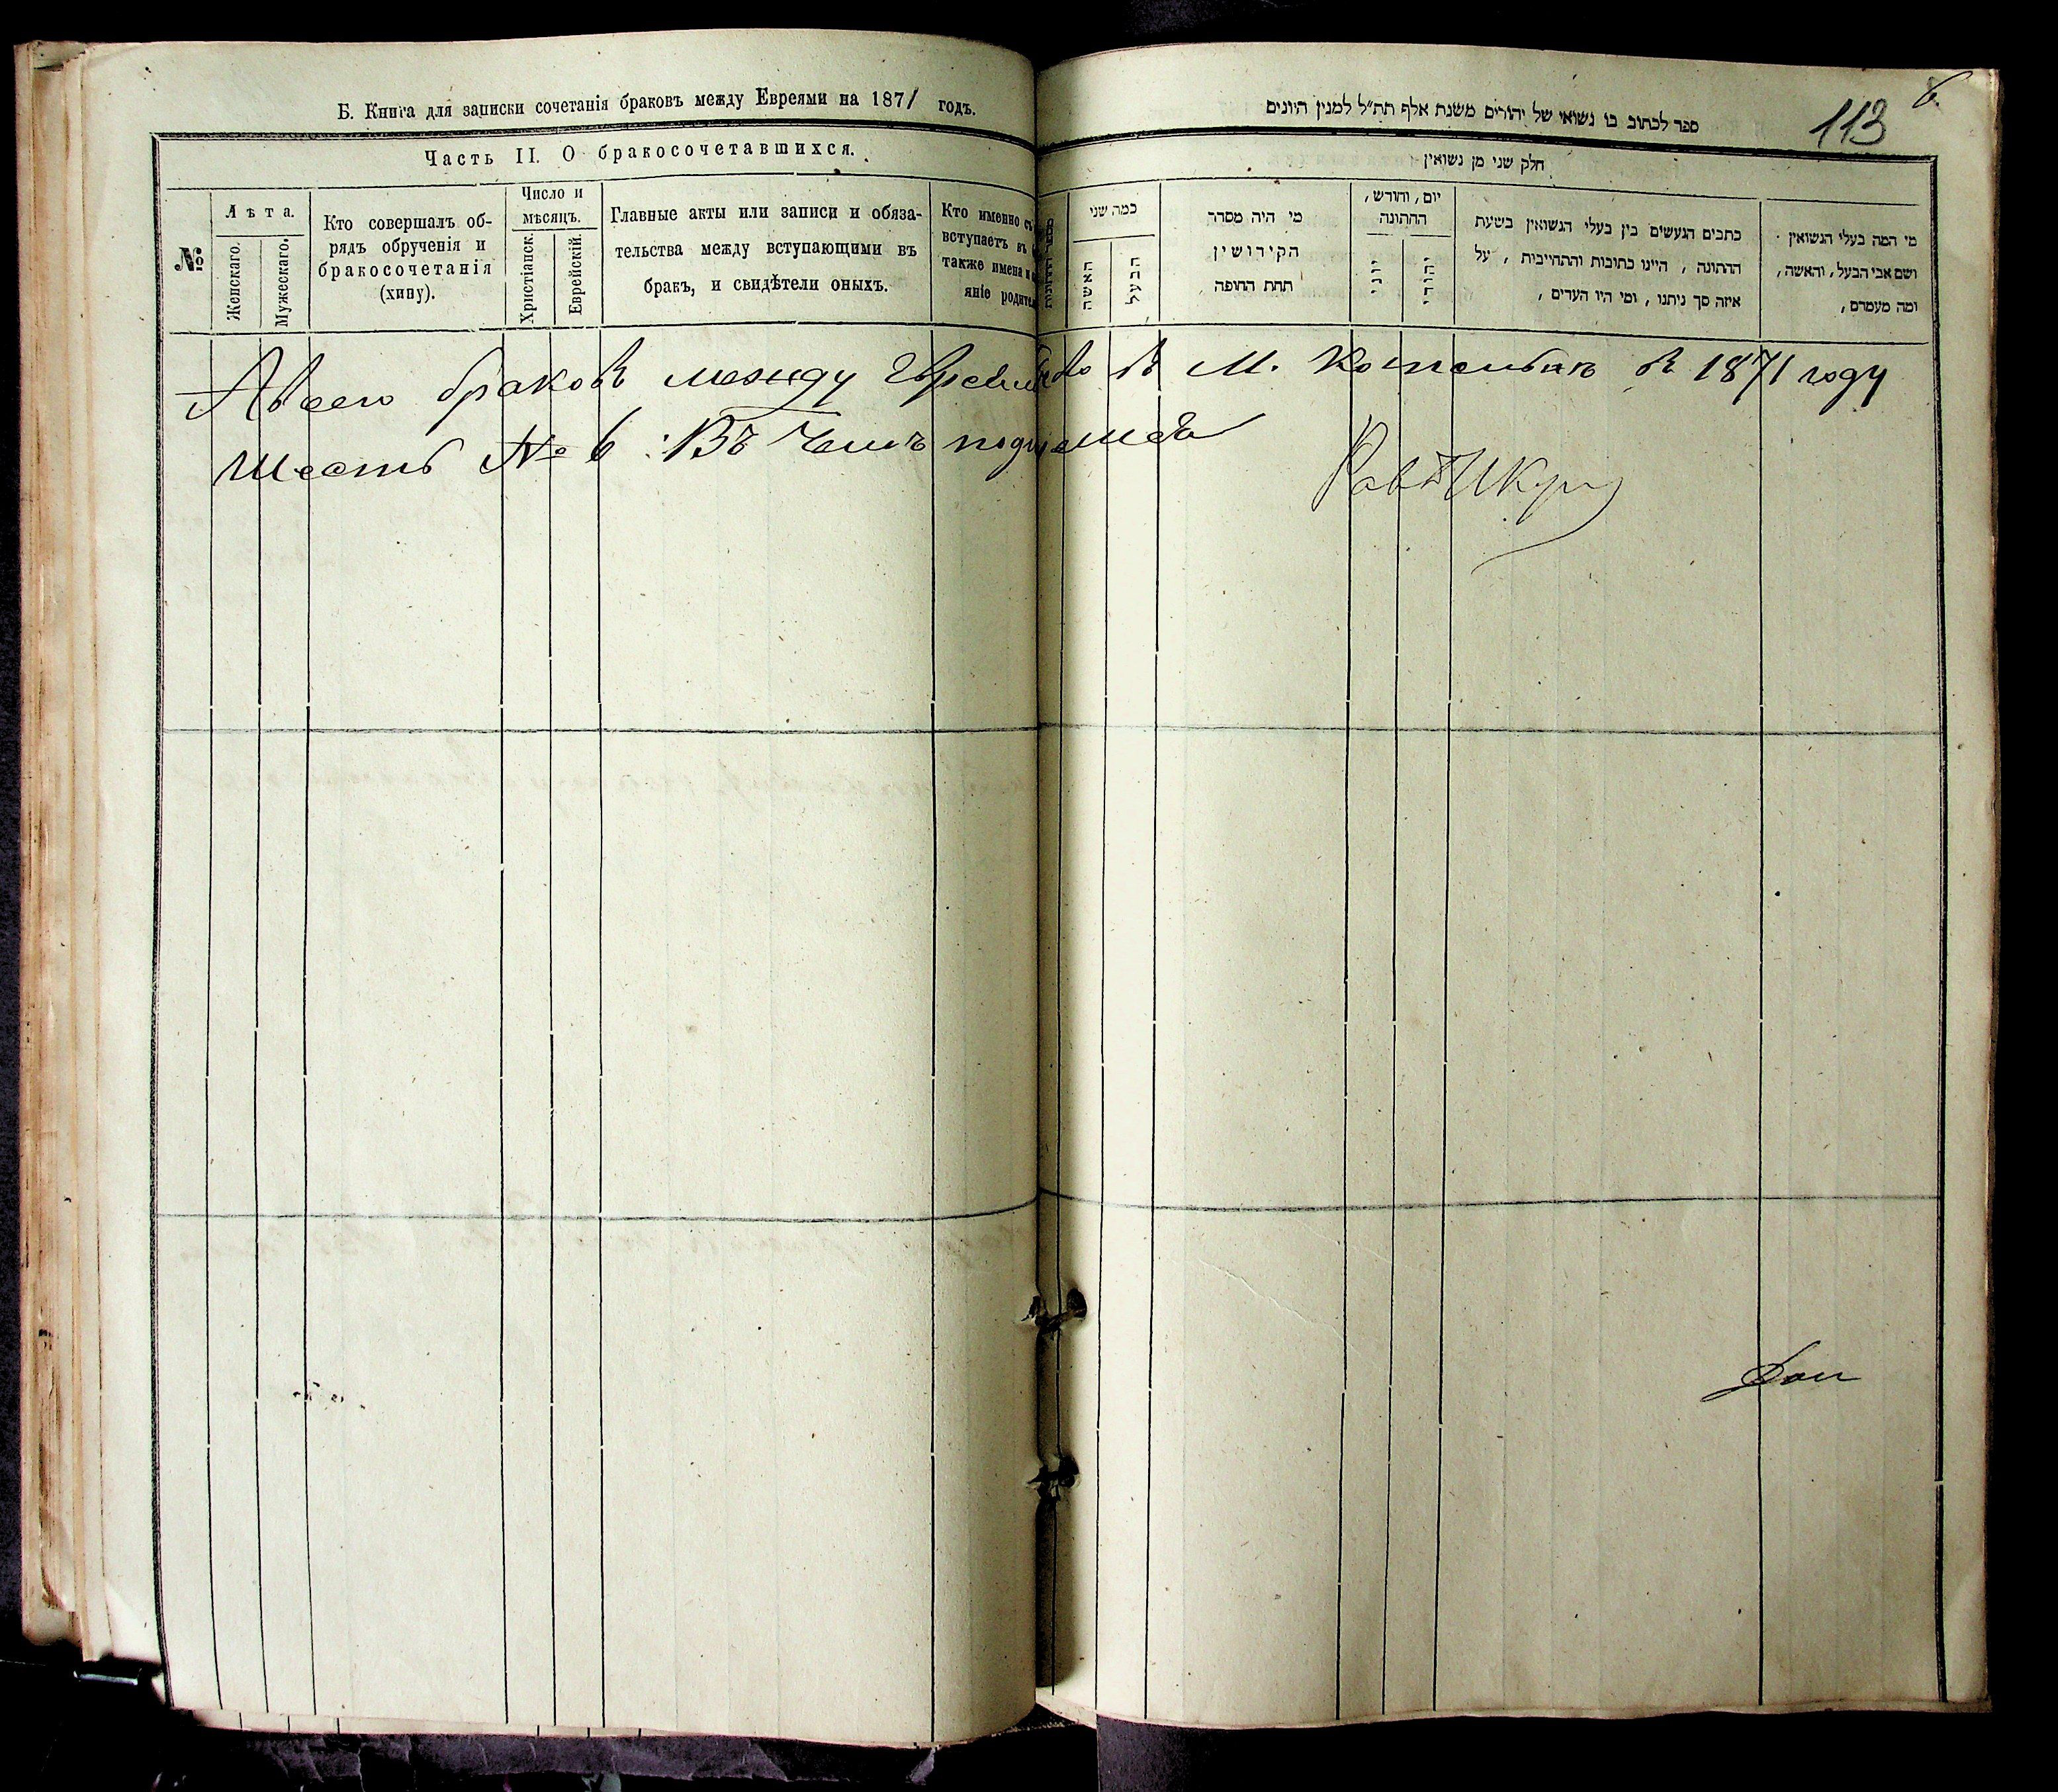 Б. Книга для записки сочетанія браковъ между Евреями на 1871 годъ.
Часть II. О бракосочетавшихся.
№
Лѣта.
Женскаго.
Мужескаго.
Кто совершалъ об-
рядъ обрученія и
бракосочетанія
(хипу).
Число и
мѣсяцъ.
Христіанск.
Еврейскій.
Главные акты или записи и обяза-
тельства между вступающими въ
бракъ, и свидѣтели оныхъ.
Кто именно
вступаетъ въ
также имена и
яніе родите
браковъ между в М. в 1871 году
Шесть № 6 Въ чемъ
Рав
113
6.
ספר לכתוב בו נשואי של יהודים משנת אלף תת״ל למנין היונים
חלק שני מן נשואין
כמה שני
האשה
הבעל
מי היה מסדר
הקידושין
תחת החופה
יום, וחודש,
החתונה
יוני
יהודי
כתבים הנעשים בין בעלי הנשואין בשעת
החתונה, היינו כתובות וההחייבות, על
איזה סך ניתנו, ומי היו העדים,
מי המה בעלי הנשואין
ושם אבי הבעל, והאשה,
ומה מעמדם,